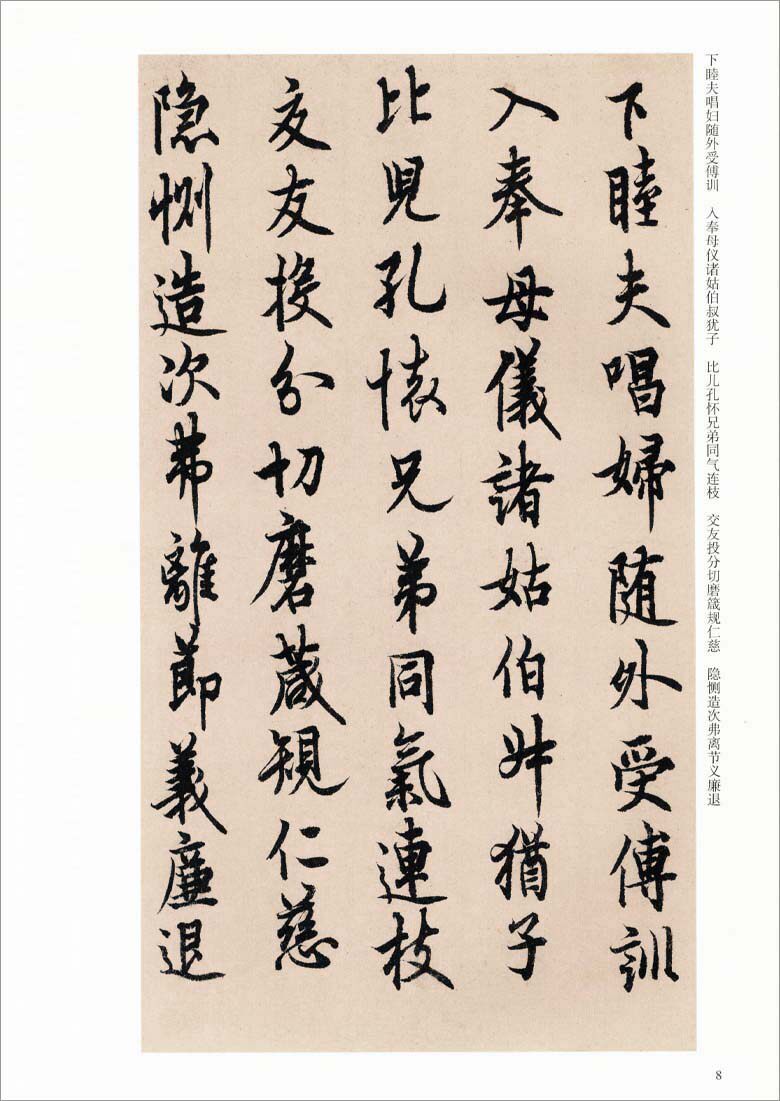 下睦夫唱妇随外受傅训　入奉母仪诸姑伯叔犹子　比儿孔怀兄弟同气连枝　交友投分切磨箴规仁慈　隐恻造次弗离节义廉退
下睦夫唱婦随外受傅訓
入奉母儀諸姑伯叔猶子
比兒孔懐兄弟同氣連枝
交友投分切磨箴規仁慈
隐恻造次弗離節義廉退
8